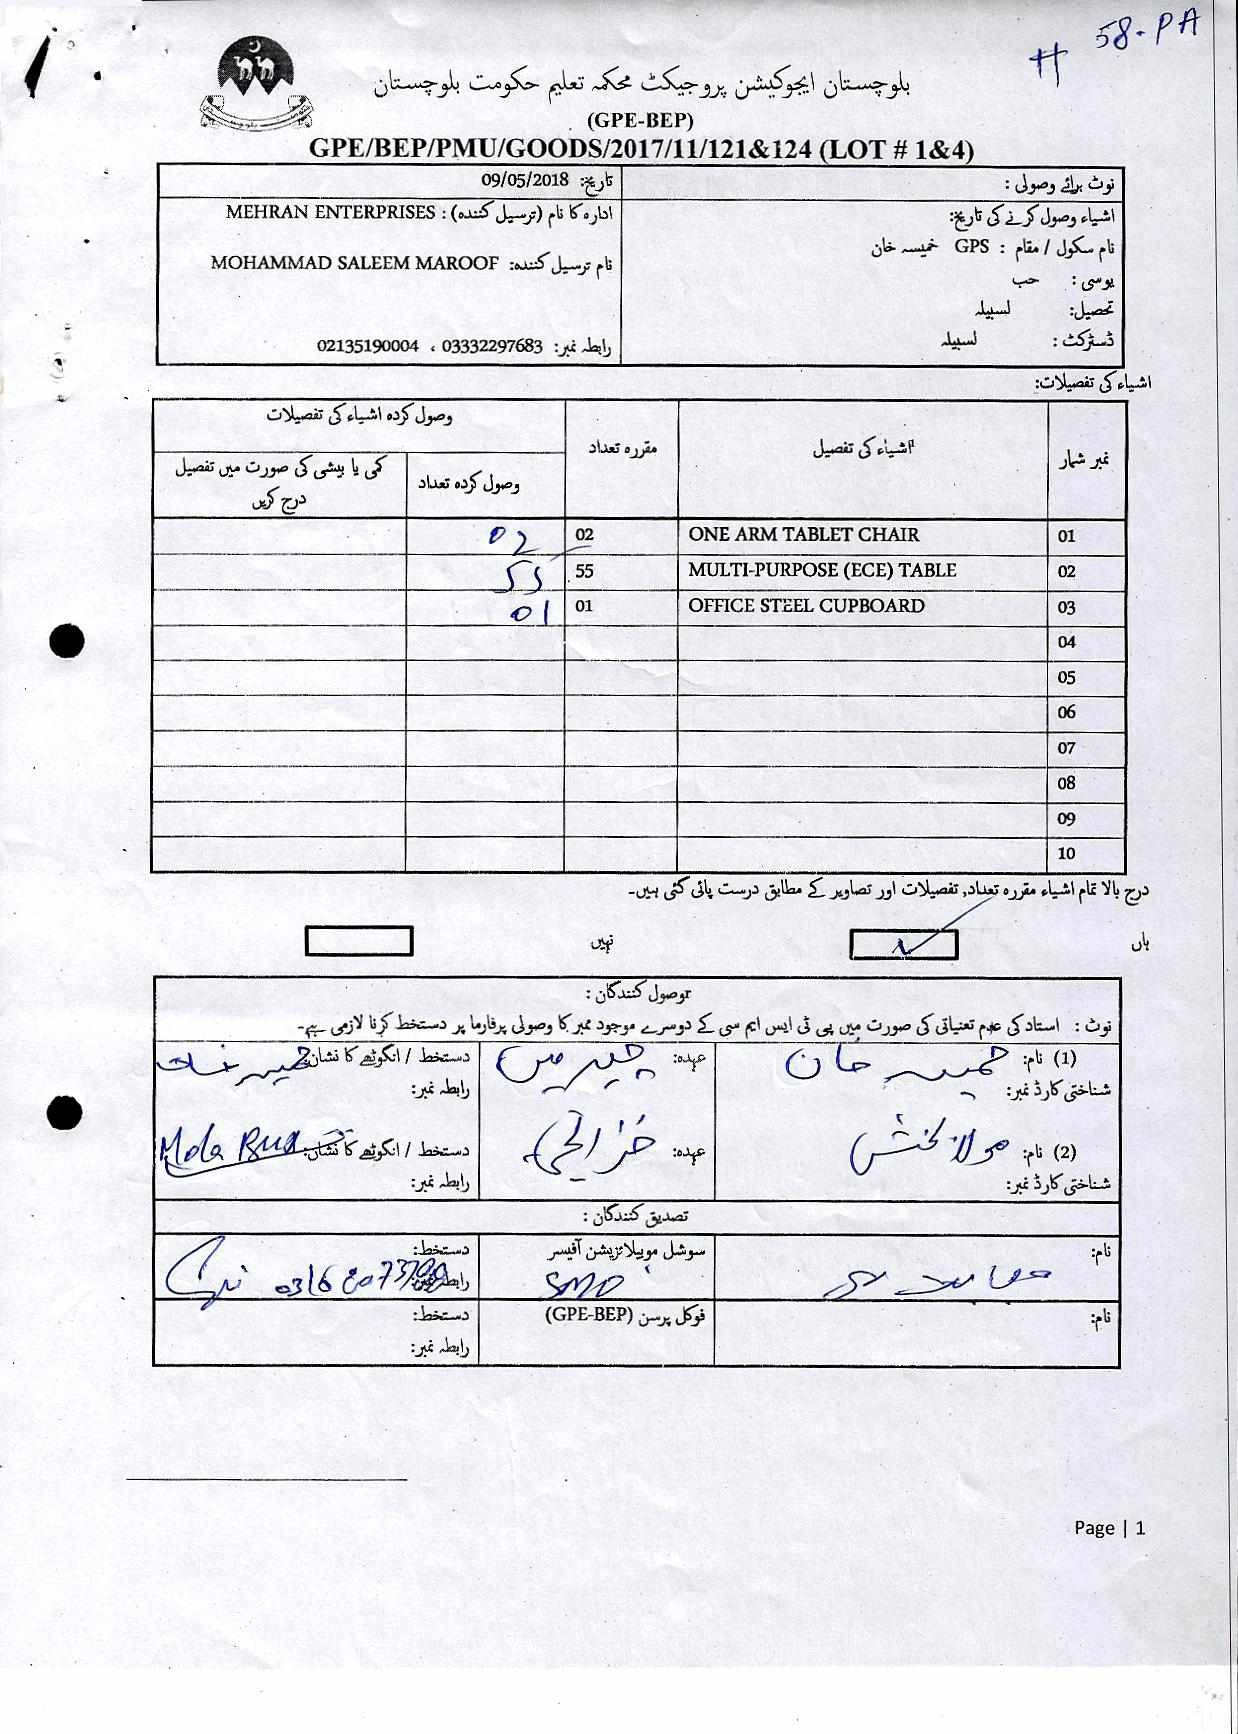 # 58-PA
بلوچستان ایجوکیشن پروجیکٹ محکمہ تعلیم حکومت بلوچستان
(GPE-BEP)
GPE/BEP/PMU/GOODS/2017/11/121&124 (LOT # 1&4)
نوٹ برائے وصولی :
تاریخ: 09/05/2018
اشیاء وصول کرنے کی تاریخ:
ادارہ کا نام (ترسیل کنندہ) : MEHRAN ENTERPRISES
نام سکول / مقام : GPS خمیسہ خان
نام ترسیل کنندہ: MOHAMMAD SALEEM MAROOF
یوسی : حب
تحصیل: لسبیلہ
ڈسٹرکٹ : لسبیلہ
رابطہ نمبر: 03332297683 ، 02135190004
اشیاء کی تفصیلات:
نمبر شمار اشیاء کی تفصیل مقررہ تعداد وصول کردہ اشیاء کی تفصیلات
وصول کردہ تعداد کمی یا بیشی کی صورت میں تفصیل درج کریں
01 ONE ARM TABLET CHAIR 02 02
02 MULTI-PURPOSE (ECE) TABLE 55 55
03 OFFICE STEEL CUPBOARD 01 01
04
05
06
07
08
09
10
درج بالا تمام اشیاء مقررہ تعداد, تفصیلات اور تصاویر کے مطابق درست پائی گئی ہیں۔
ہاں نہیں
وصول کنندگان :
نوٹ : استاد کی عدم تعنیاتی کی صورت میں پی ٹی ایس ایم سی کے دوسرے موجود ممبر کا وصولی پرفارما پر دستخط کرنا لازمی ہے۔
(1) نام: خمیسہ خان عہدہ: چیرمین دستخط / انگوٹھے کا نشان: خمیسہ خان
شناختی کارڈ نمبر: رابطہ نمبر:
(2) نام: مولا بخش عہدہ: خزانچی دستخط / انگوٹھے کا نشان: Mola Bux
شناختی کارڈ نمبر: رابطہ نمبر:
تصدیق کنندگان :
نام: سوشل موبیلائزیشن آفیسر دستخط:
SMO رابطہ نمبر:
نام: فوکل پرسن (GPE-BEP) دستخط:
رابطہ نمبر:
Page | 1